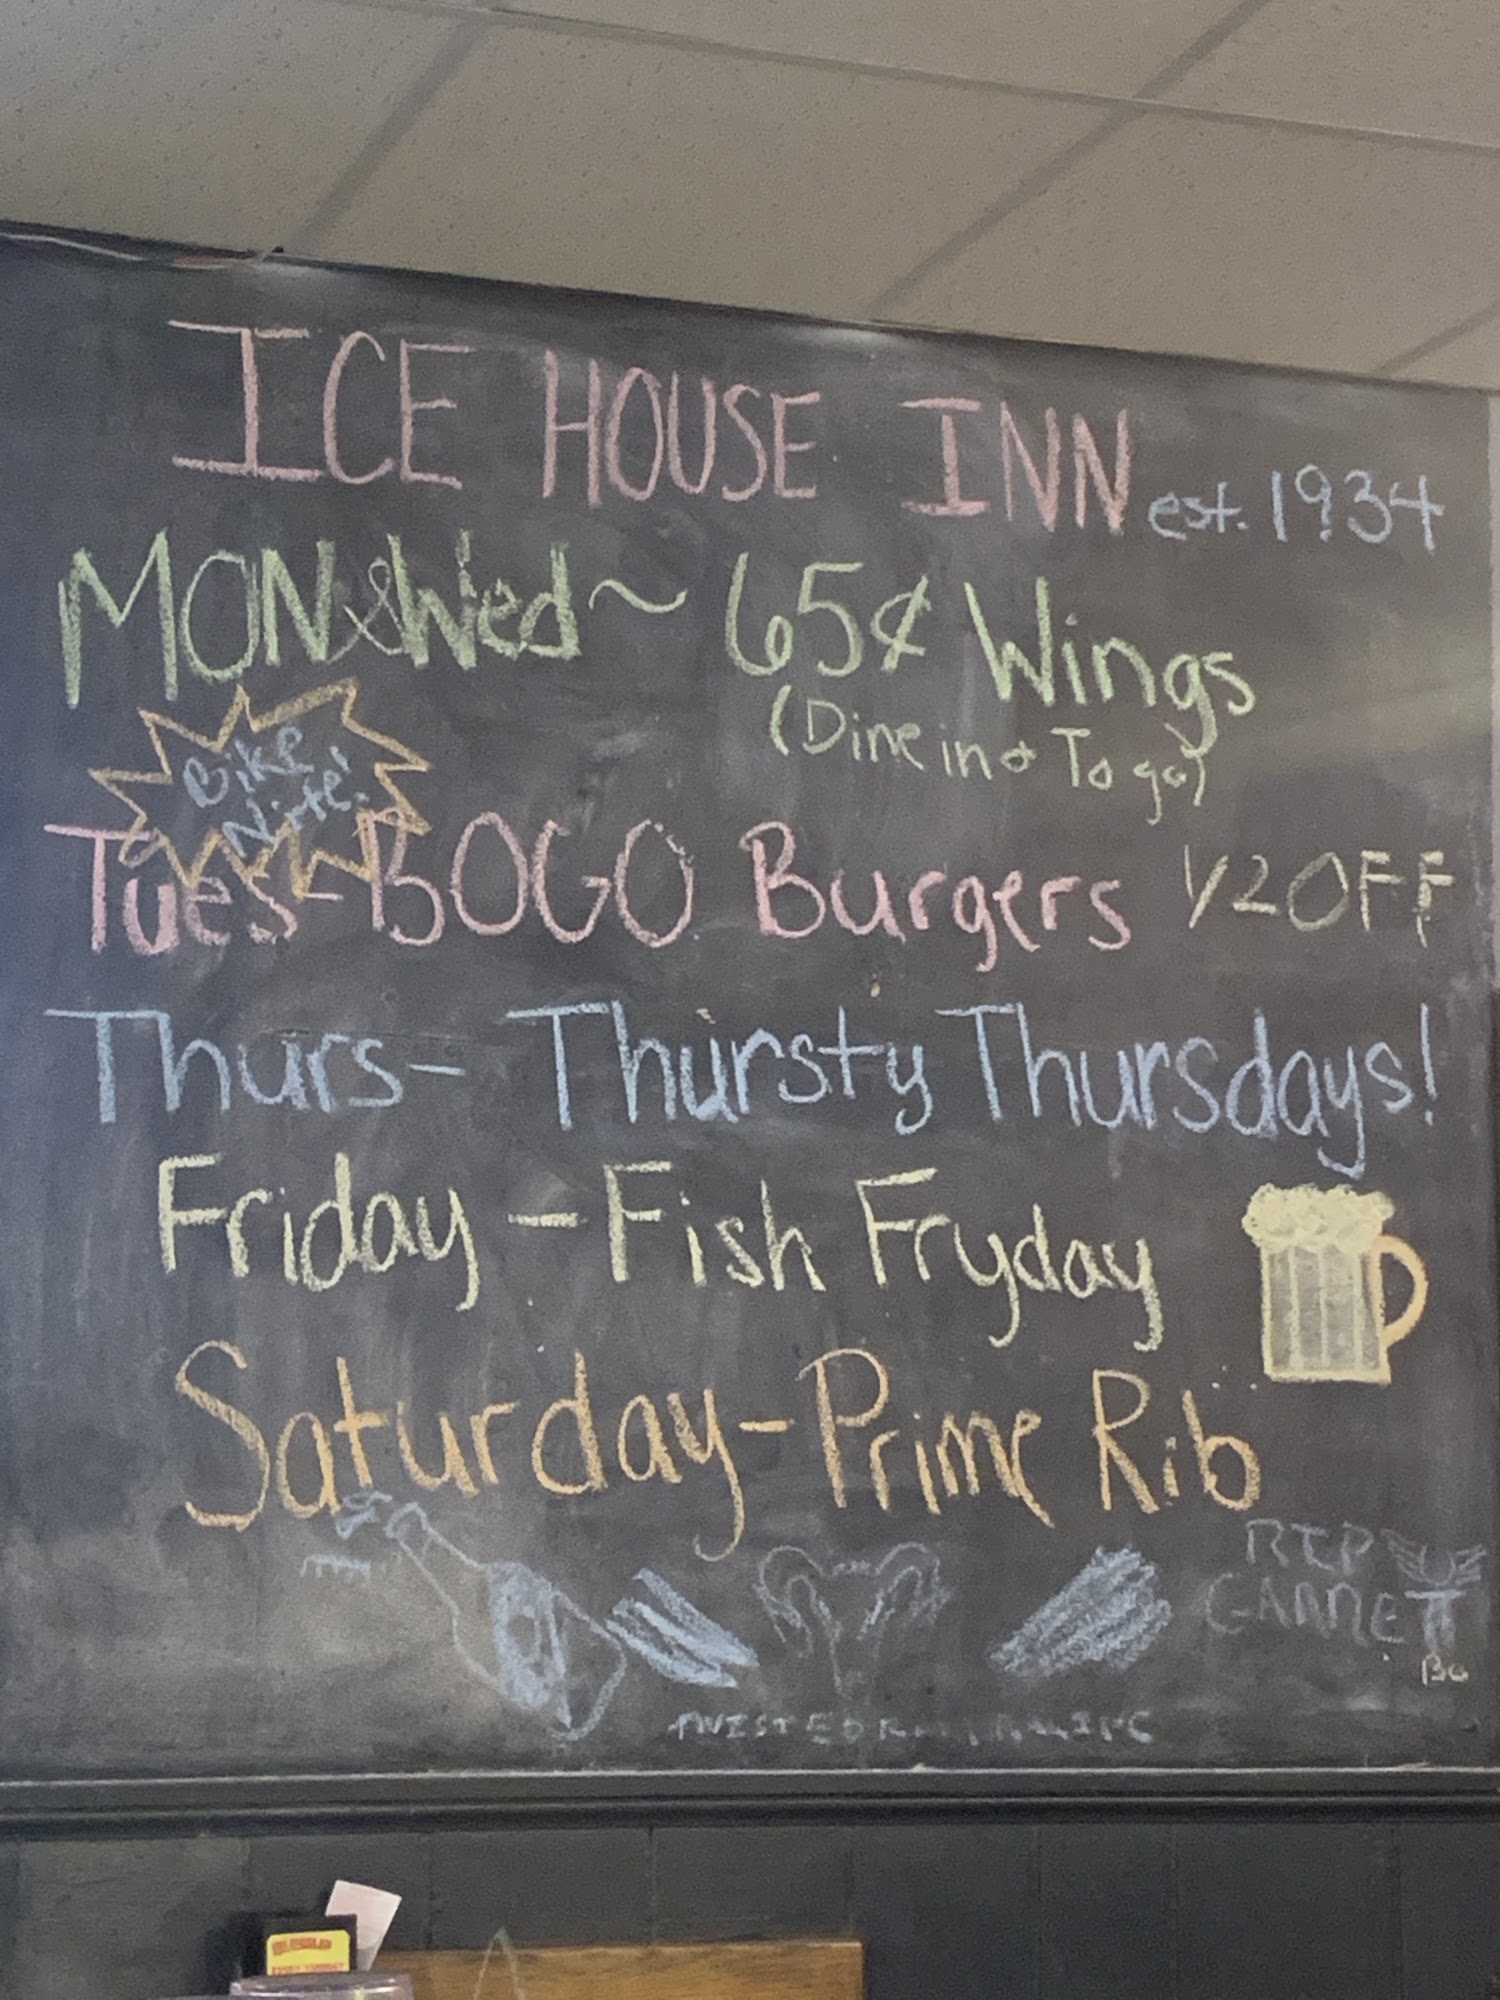 ICE HOUSE INN est. 1934
MON & Wed ~ 65¢ Wings
(Dine in & To go)
Bike
Nite!
Tues - BOGO Burgers 1/2 OFF
Thurs - Thursty Thursdays!
Friday - Fish Fryday
Saturday - Prime Rib
RIP